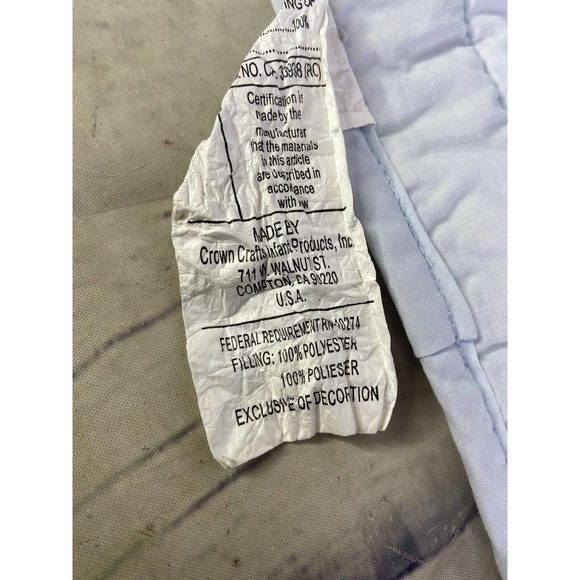 ING OF
100%
NO. CA 33938 (RC)
Certification is
made by the
manufacturer
that the materials
in this article
are described in
accordance
with
MADE BY
Crown Crafts Infant Products, Inc.
711 W. WALNUT ST.
COMPTON, CA 90220
U.S.A.
FEDERAL REQUIREMENT
FILLING: 100% POLYESTER
100% POLIESER
EXCLUSIVE OF DECORTION